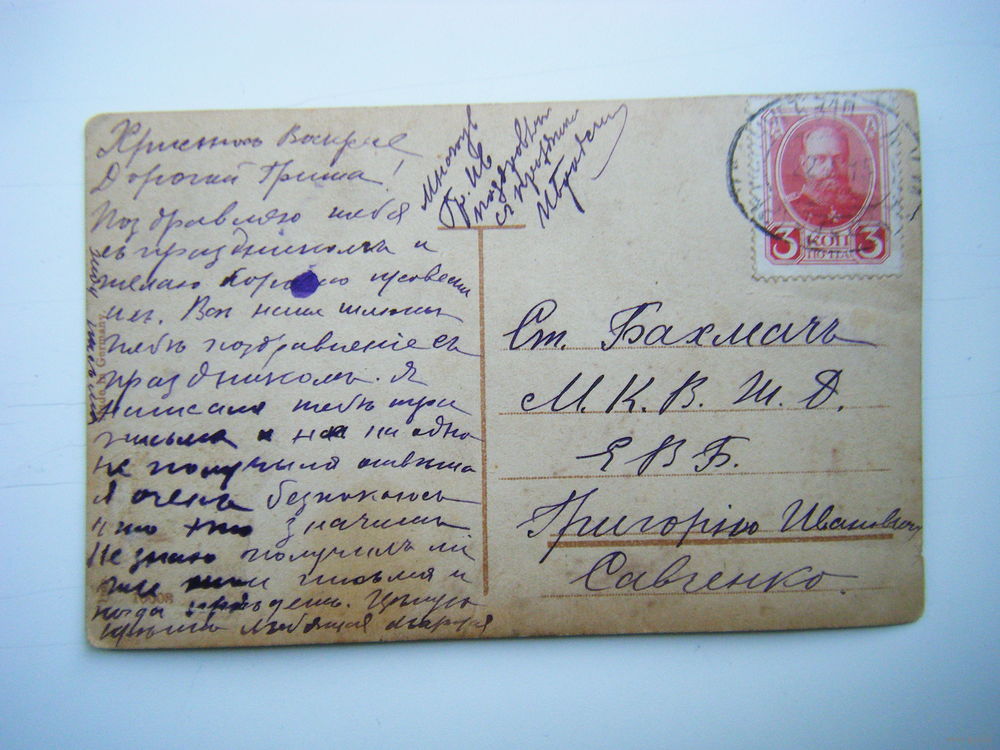 Христосъ Воскресе
Дорогой Гриша!
Поздравляю тебя
съ праздникомъ и
желаю хорошо провести
его. Вся наша
тебѣ поздравленіе съ
праздникомъ. Я
написала тебѣ три
письма и на ни одно
не получила отвѣта
я очень безпокоюсь
что это значитъ
Не знаю получилъ ли
ты мои письма и
когда пріѣдешь. Цѣлую
крѣпко Любящая
Многоув
Гр. Ив
поздоровляю
съ праздником
3 КОП 3
ПОЧТА
Ст. Бахмачъ
М. К. В. Ж. Д.
ЕВБ.
Григорію Ивановичу
Савченко.
Made in Germany